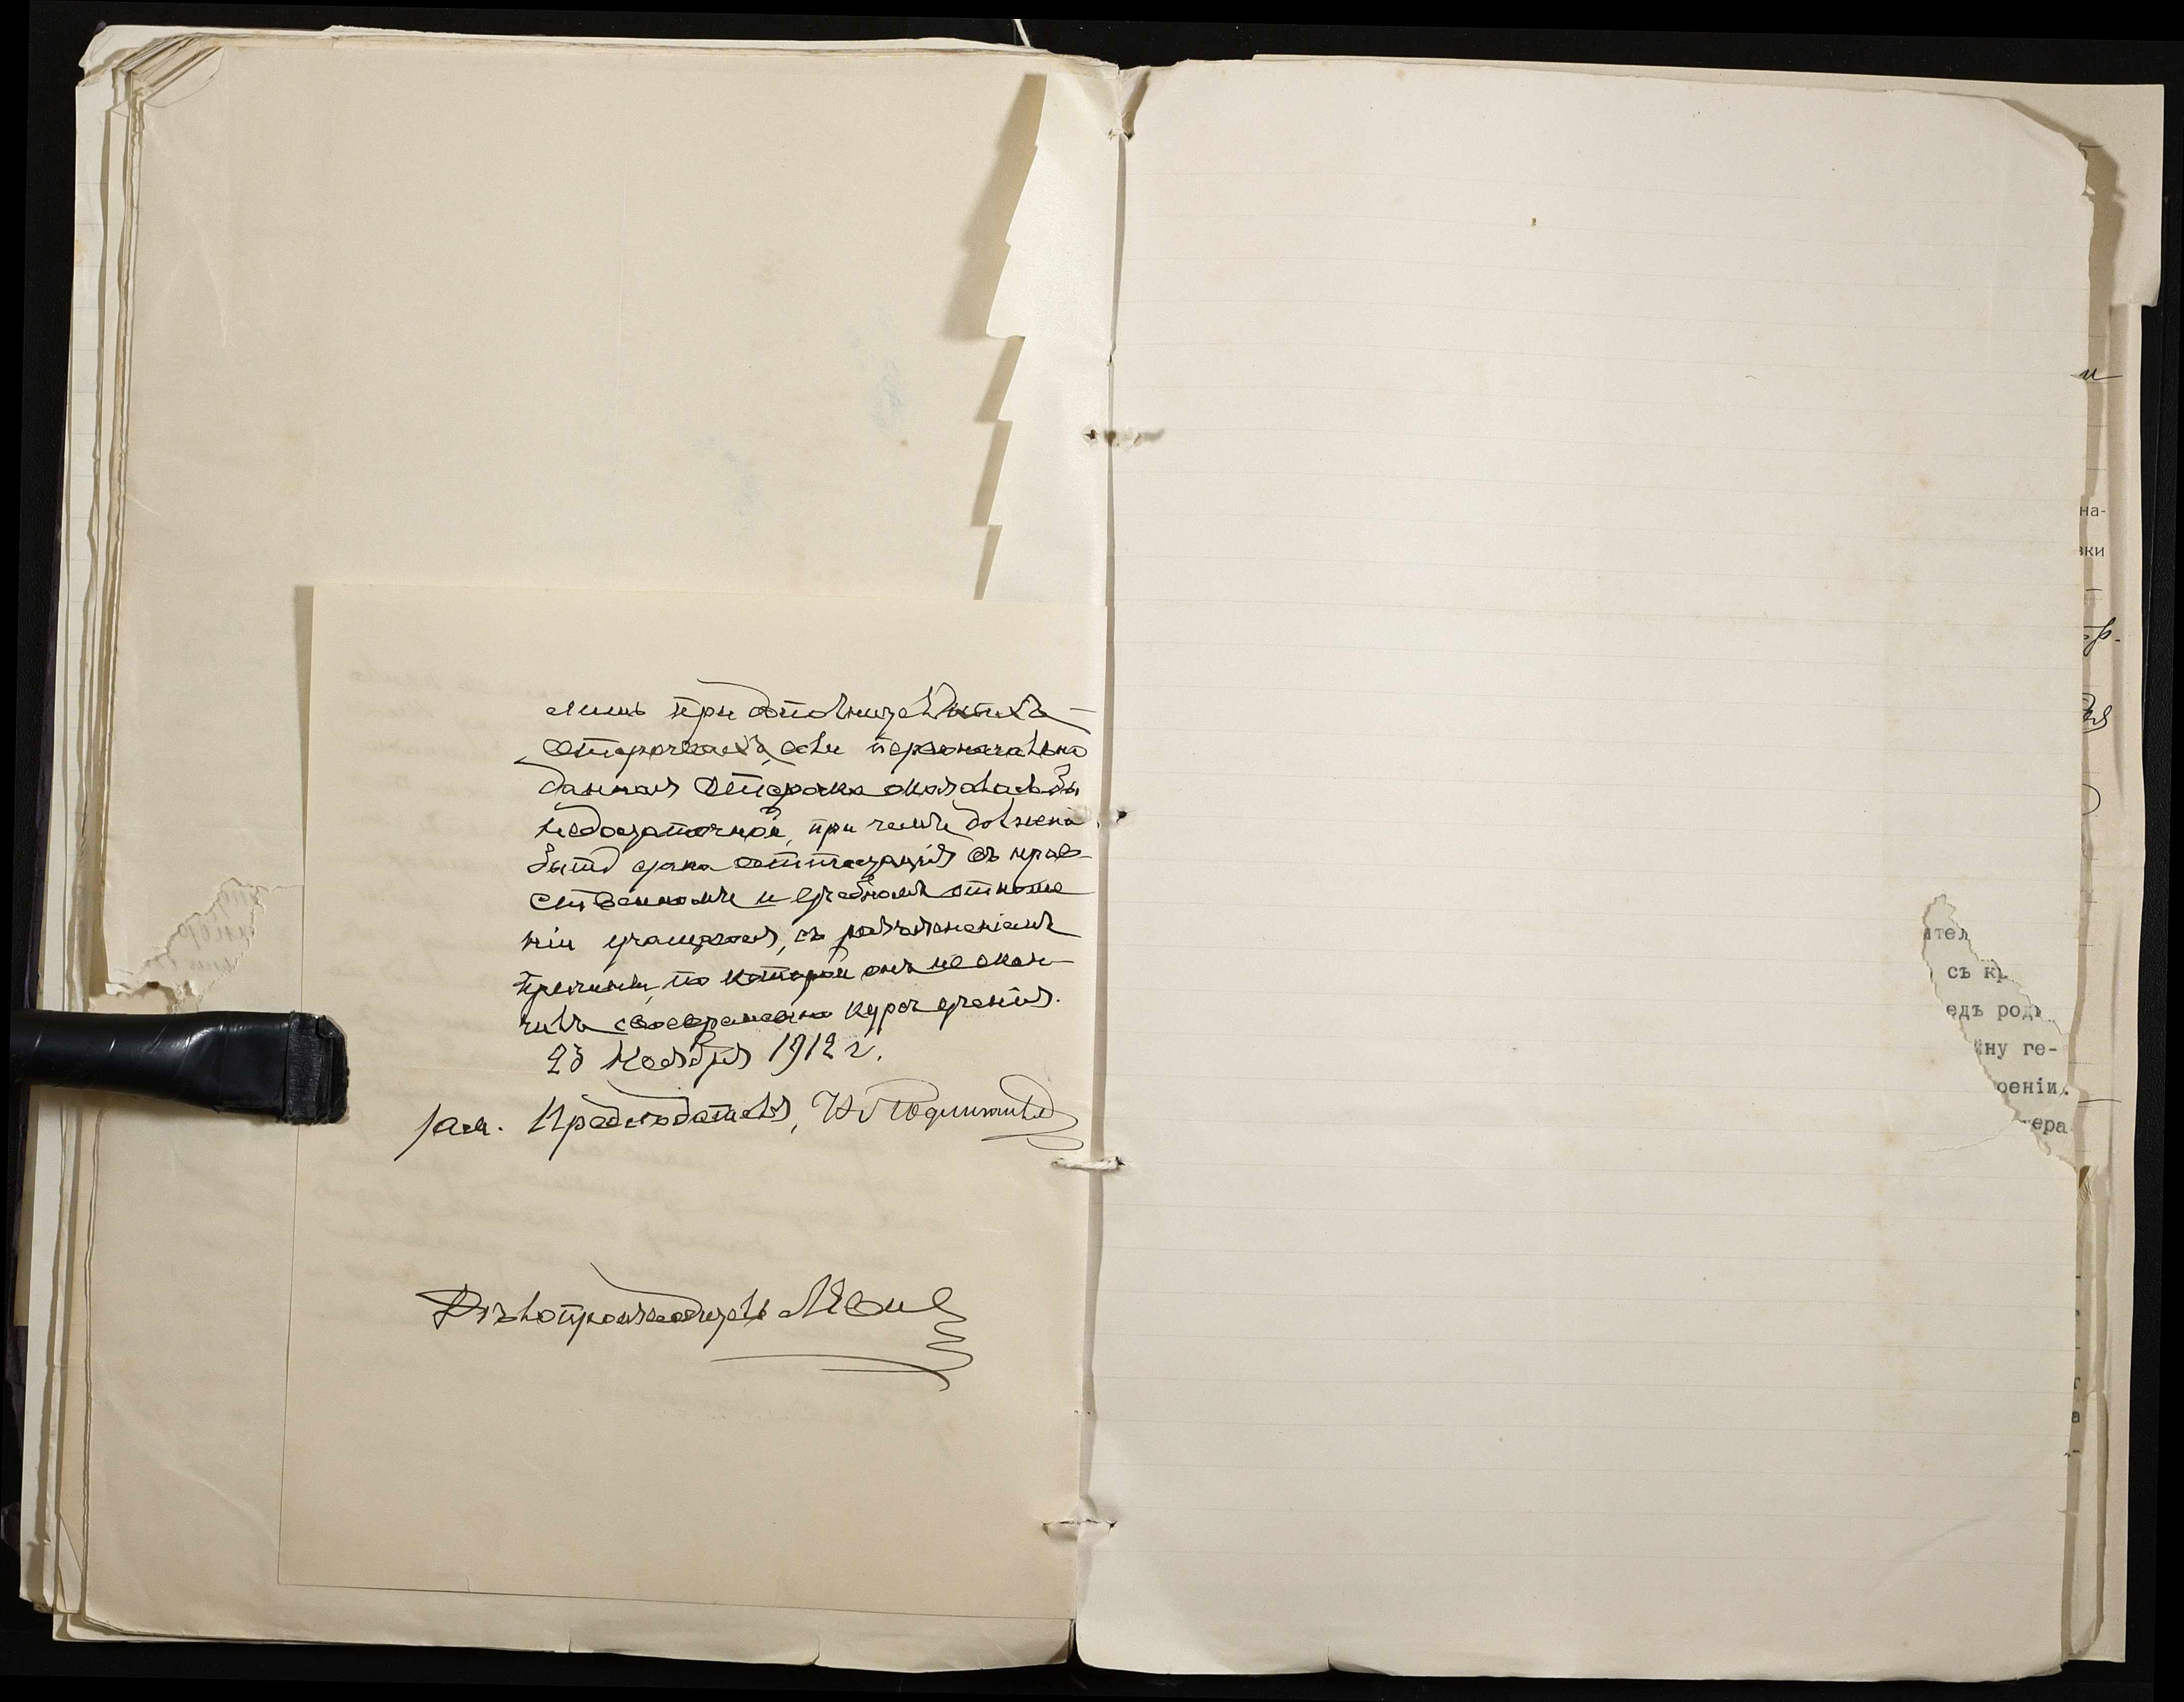 лишь при дополнительныхъ
отсрочкахъ, если первоначально
данная отсрочка оказалась бы
недостаточной, при чемъ должна
быть дана аттестація въ нрав-
ственномъ и учебномъ отноше
ніи учащагося, съ разъясненіемъ
причины, по которой онъ не окон-
чилъ своевременно курса ученія.
23 Ноября 1912 г.
Предсѣдателя,
Дѣлопроизводитель
ител
съ кр
едъ родн
ину ге-
роеніи.
ера
на-
вки